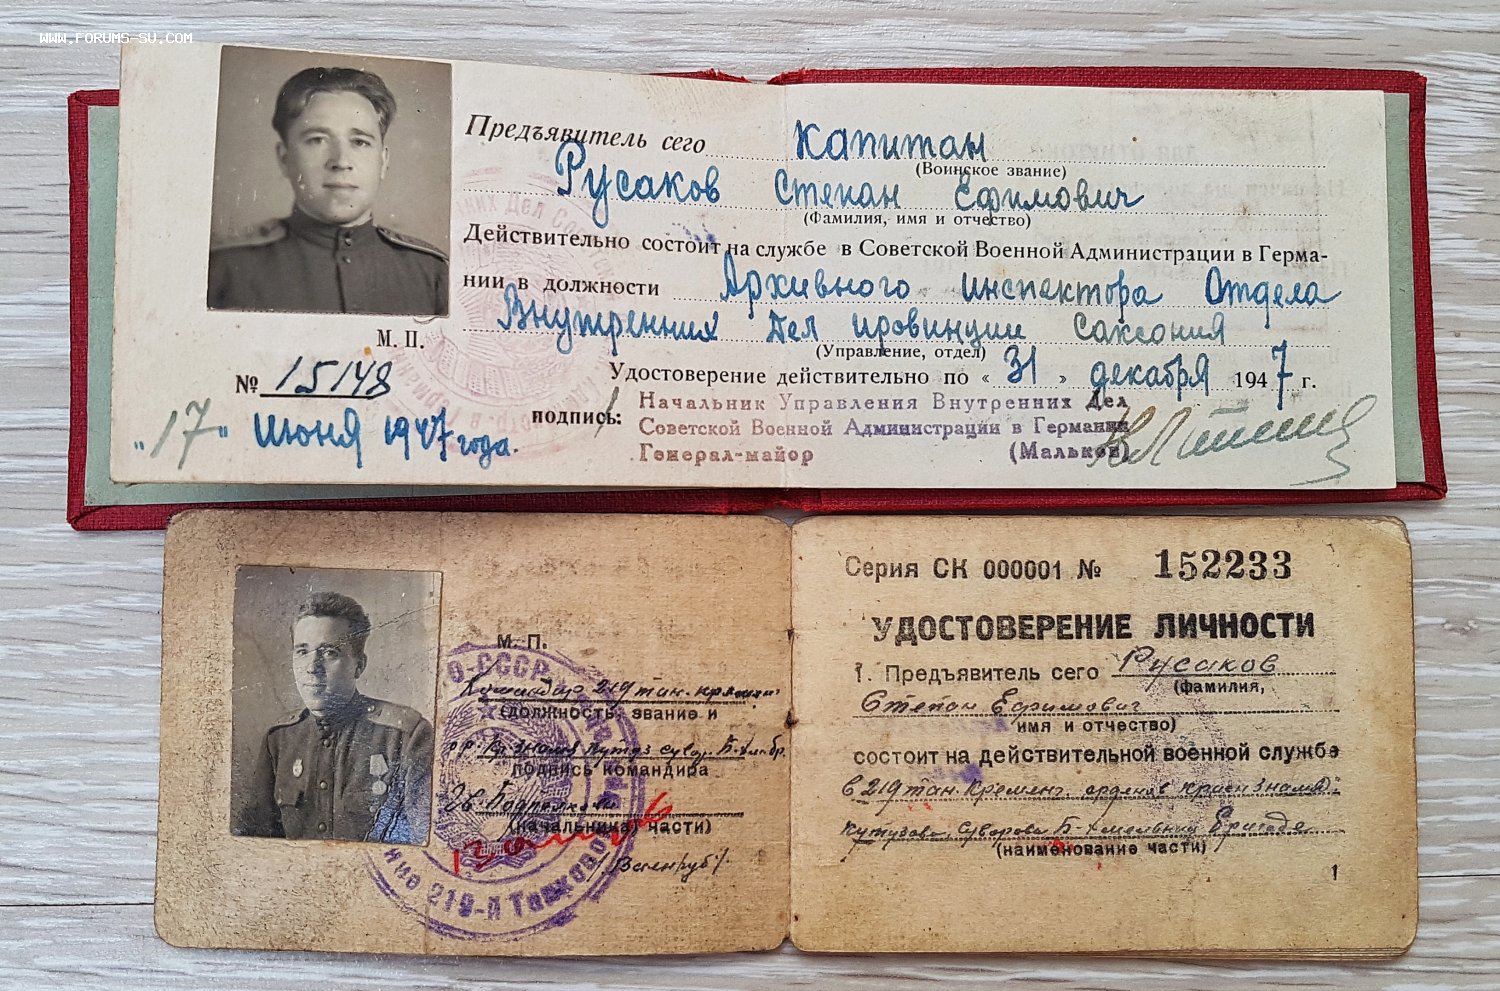 WWW.FORUMS-SU.COM
Предъявитель сего Капитан
(Воинское звание)
Русаков Степан Ефимович
(Фамилия, имя и отчество)
Действительно состоит на службе в Советской Военной Администрации в Герма-
нии в должности Архивного инспектора Отдела
Внутренних Дел провинции Саксония
(Управление, отдел)
М. П.
№ 15148
Удостоверение действительно по « 31 » декабря 1947 г.
"17" июня 1947 года.
подпись:
Начальник Управления Внутренних Дел
Советской Военной Администрации в Германии
Генерал-майор (Мальков)
М. П.
Командир 219 тан.
(должность, звание и
подпись командира
Гв. Подполковн
(начальника части)
219-й Танковой
Серия СК 000001 № 152233
УДОСТОВЕРЕНИЕ ЛИЧНОСТИ
1. Предъявитель сего Русаков
(фамилия,
Степан Ефимович
имя и отчество)
состоит на действительной военной службе
в 219 тан. Кременч. орденов Краснознамён.
Кутузова, Суворова Б-Хмельниц Бригаде
(наименование части)
1